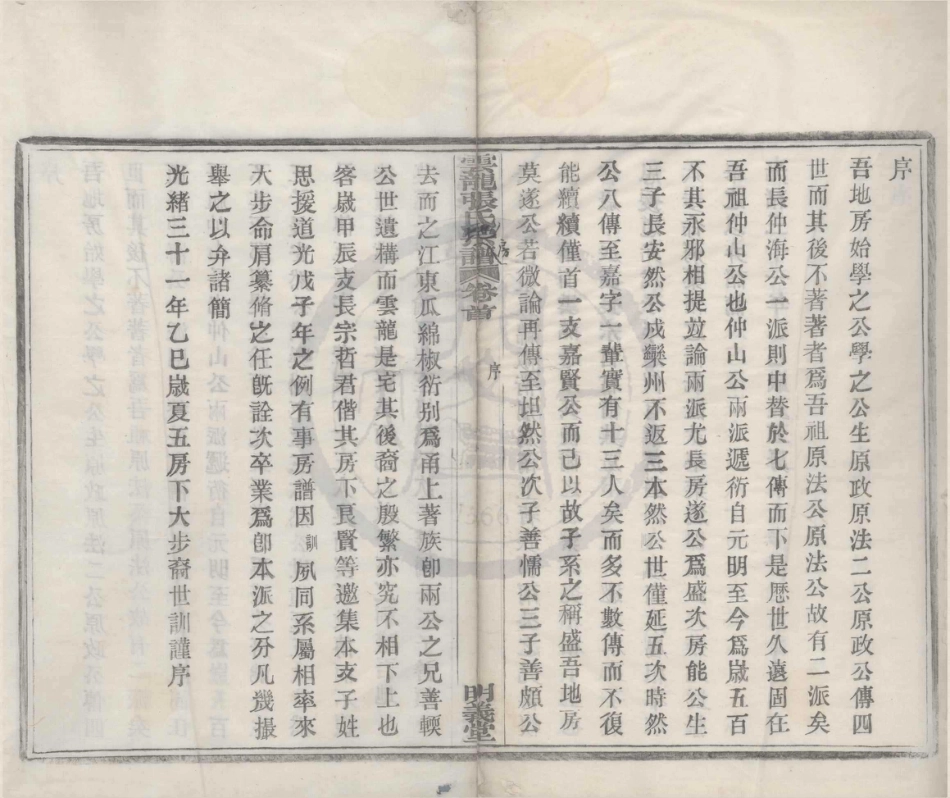 序
吾地房始學之公學之公生原政原法二公原政公傳四
世而其後不著著者爲吾祖原法公原法公故有二派矣
而長仲海公一派則中替於七傳而下是歷世久遠固在
吾祖仲山公也仲山公兩派遞衍自元明至今爲歲五百
不其永邪相提竝論兩派尤長房遂公爲盛次房能公生
三子長安然公戍欒州不返三本然公世僅延五次時然
公八傳至嘉字一輩實有十三人矣而多不數傳而不復
能續續僅首一支嘉賢公而已以故子系之稱盛吾地房
莫遂公若微論再傳至坦然公次子善懦公三子善頗公
雲龍張氏地房譜 序 卷首
序
明義堂
去而之江東瓜綿椒衍别爲甬上著族卽兩公之兄善輭
公世遺構而雲龍是宅其後裔之殷繁亦究不相下上也
客歲甲辰支長宗哲君偕其房下艮賢等邀集本支子姓
思援道光戊子年之例有事房譜因訓夙同系屬相率來
大步命肩纂脩之任旣詮次卒業爲卽本派之分凡幾撮
舉之以弁諸簡
光緒三十一年乙巳歲夏五房下大步裔世訓謹序